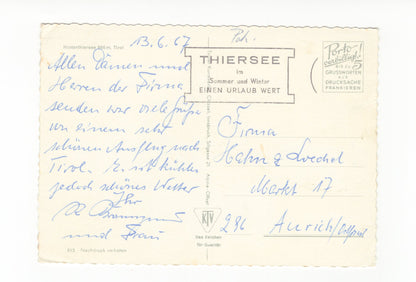 Hinterthiersee 886 m, Tirol
13.6.67
Pok.
THIERSEE
im
Sommer und Winter
EINEN URLAUB WERT
Porto-
verbilligt!
BIS ZU 5
GRUSSWORTEN
ALS
DRUCKSACHE
FRANKIEREN
Allen Damen und
Herren der Firma
senden wir viele Grüße
von einem sehr
schönen Ausflug nach
Tirol. Es ist kühles
jedoch schönes Wetter
Ihr
und Frau
Firma
Hahn & Loechel
Markt 17
296 Aurich/Ostfriesl
KTV
Das Zeichen
für Qualität
Nachdruck verboten